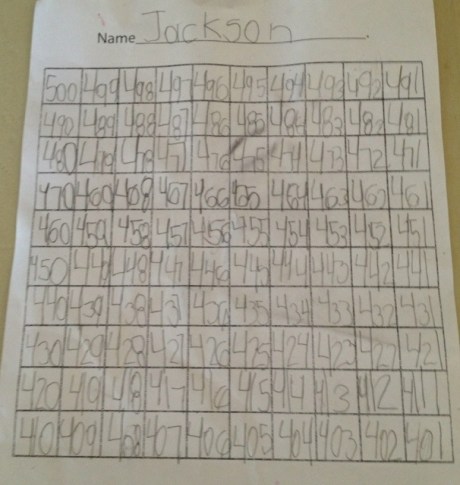 Name Jackson
500 499 498 497 496 495 494 493 492 491
490 489 488 487 486 485 484 483 482 481
480 479 478 477 476 474 473 472 471
470 469 468 467 466 464 463 462 461
460 459 458 457 456 455 454 453 452 451
450 449 448 447 446 445 444 443 442 441
440 439 438 437 436 435 434 433 432 431
430 429 428 427 426 425 424 423 422 421
420 419 418 417 416 415 414 413 412 411
410 409 408 407 406 405 404 403 402 401